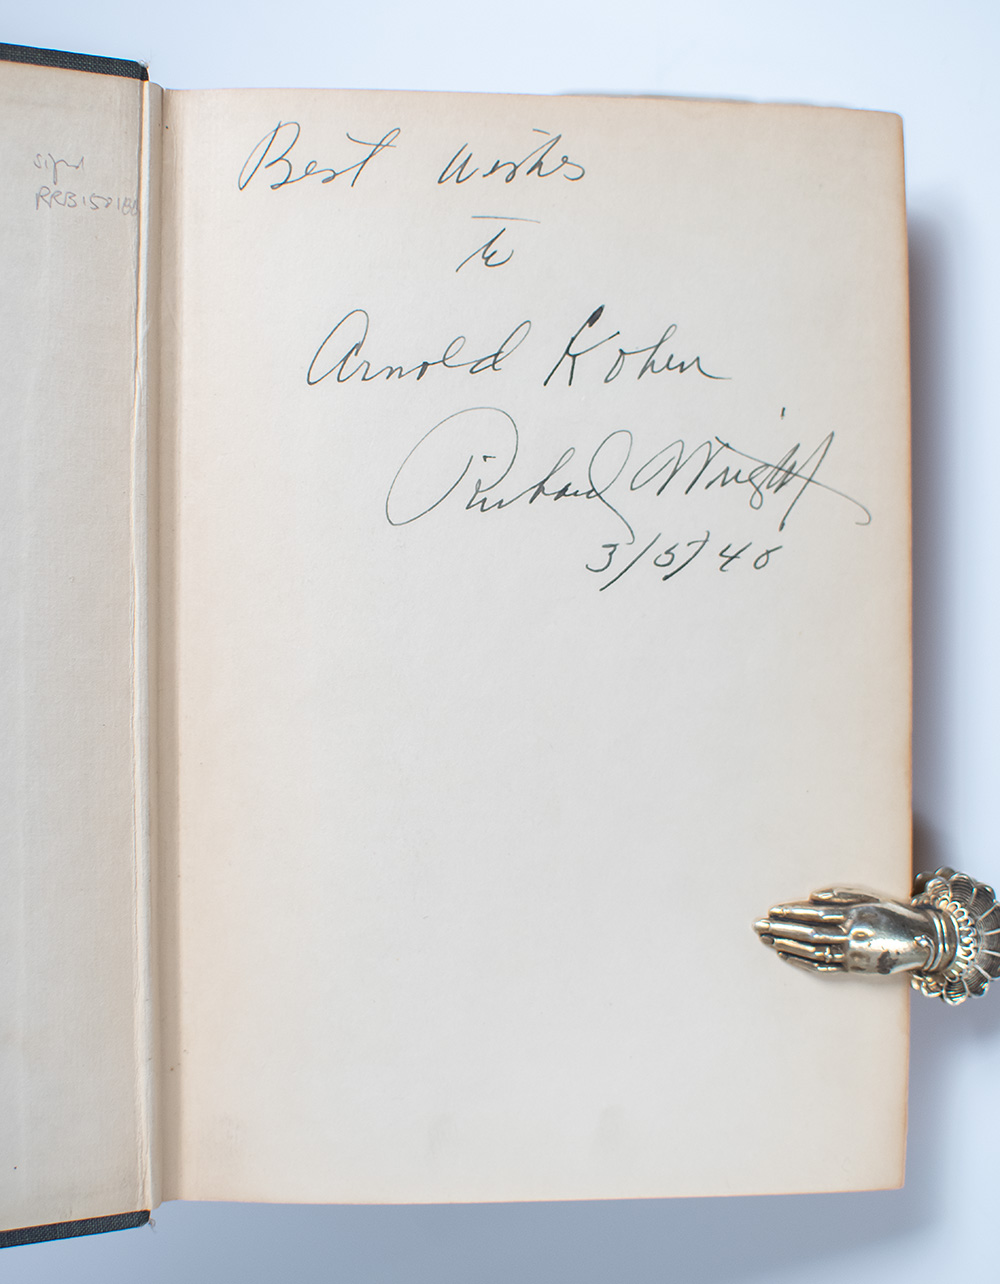 signed
Best Wishes
To
Arnold Kohen
Richard Wright
3/5/40